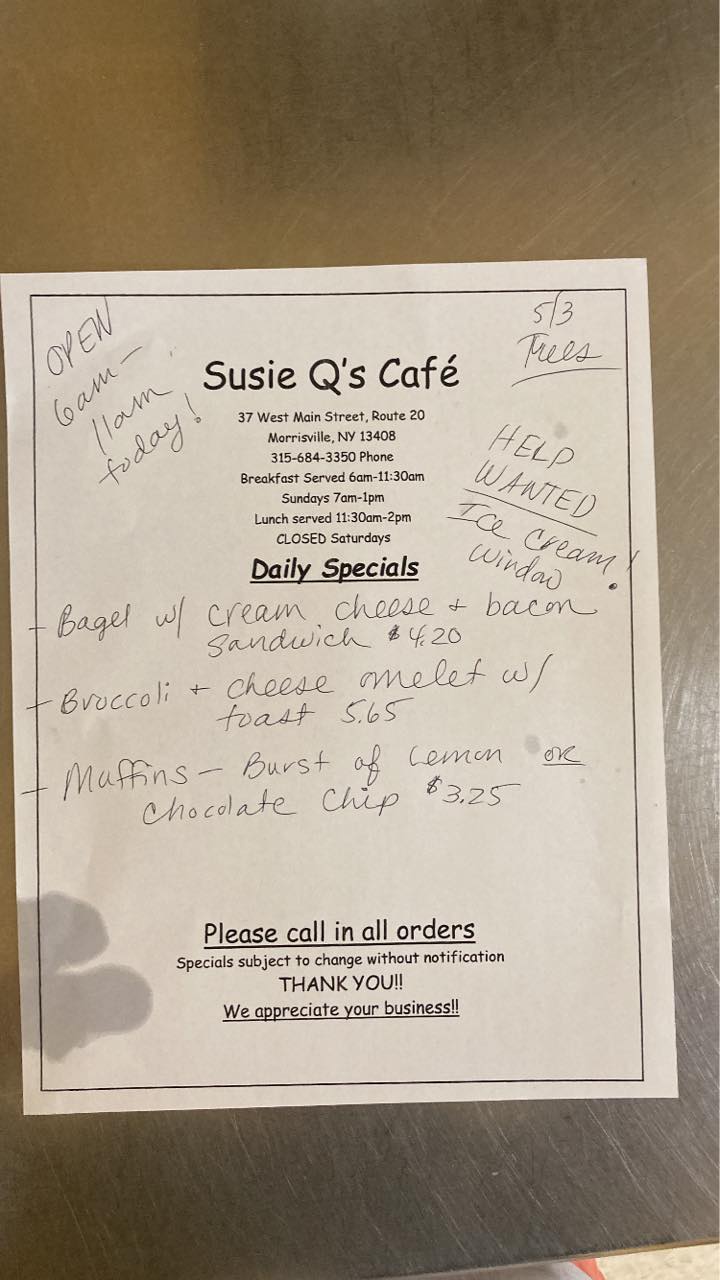 OPEN
6am -
11am
today!
5/3
Trees
Susie Q's Café
37 West Main Street, Route 20
Morrisville, NY 13408
315-684-3350 Phone
Breakfast Served 6am-11:30am
Sundays 7am-1pm
Lunch served 11:30am-2pm
CLOSED Saturdays
HELP
WANTED
Ice Cream
window!
Daily Specials
- Bagel w/ cream cheese + bacon
sandwich $4.20
- Broccoli + cheese omelet w/
toast 5.65
- Muffins - Burst of Lemon OR
Chocolate Chip $3.25
Please call in all orders
Specials subject to change without notification
THANK YOU!!
We appreciate your business!!